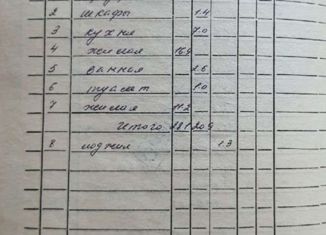 2 шкафы 1.4
3 кухня 7.0
4 жилая 16.9
5 ванная 2.6
6 туалет 1.0
7 жилая 11.2
Итого 28.1 20.9
8 лоджия 1.3